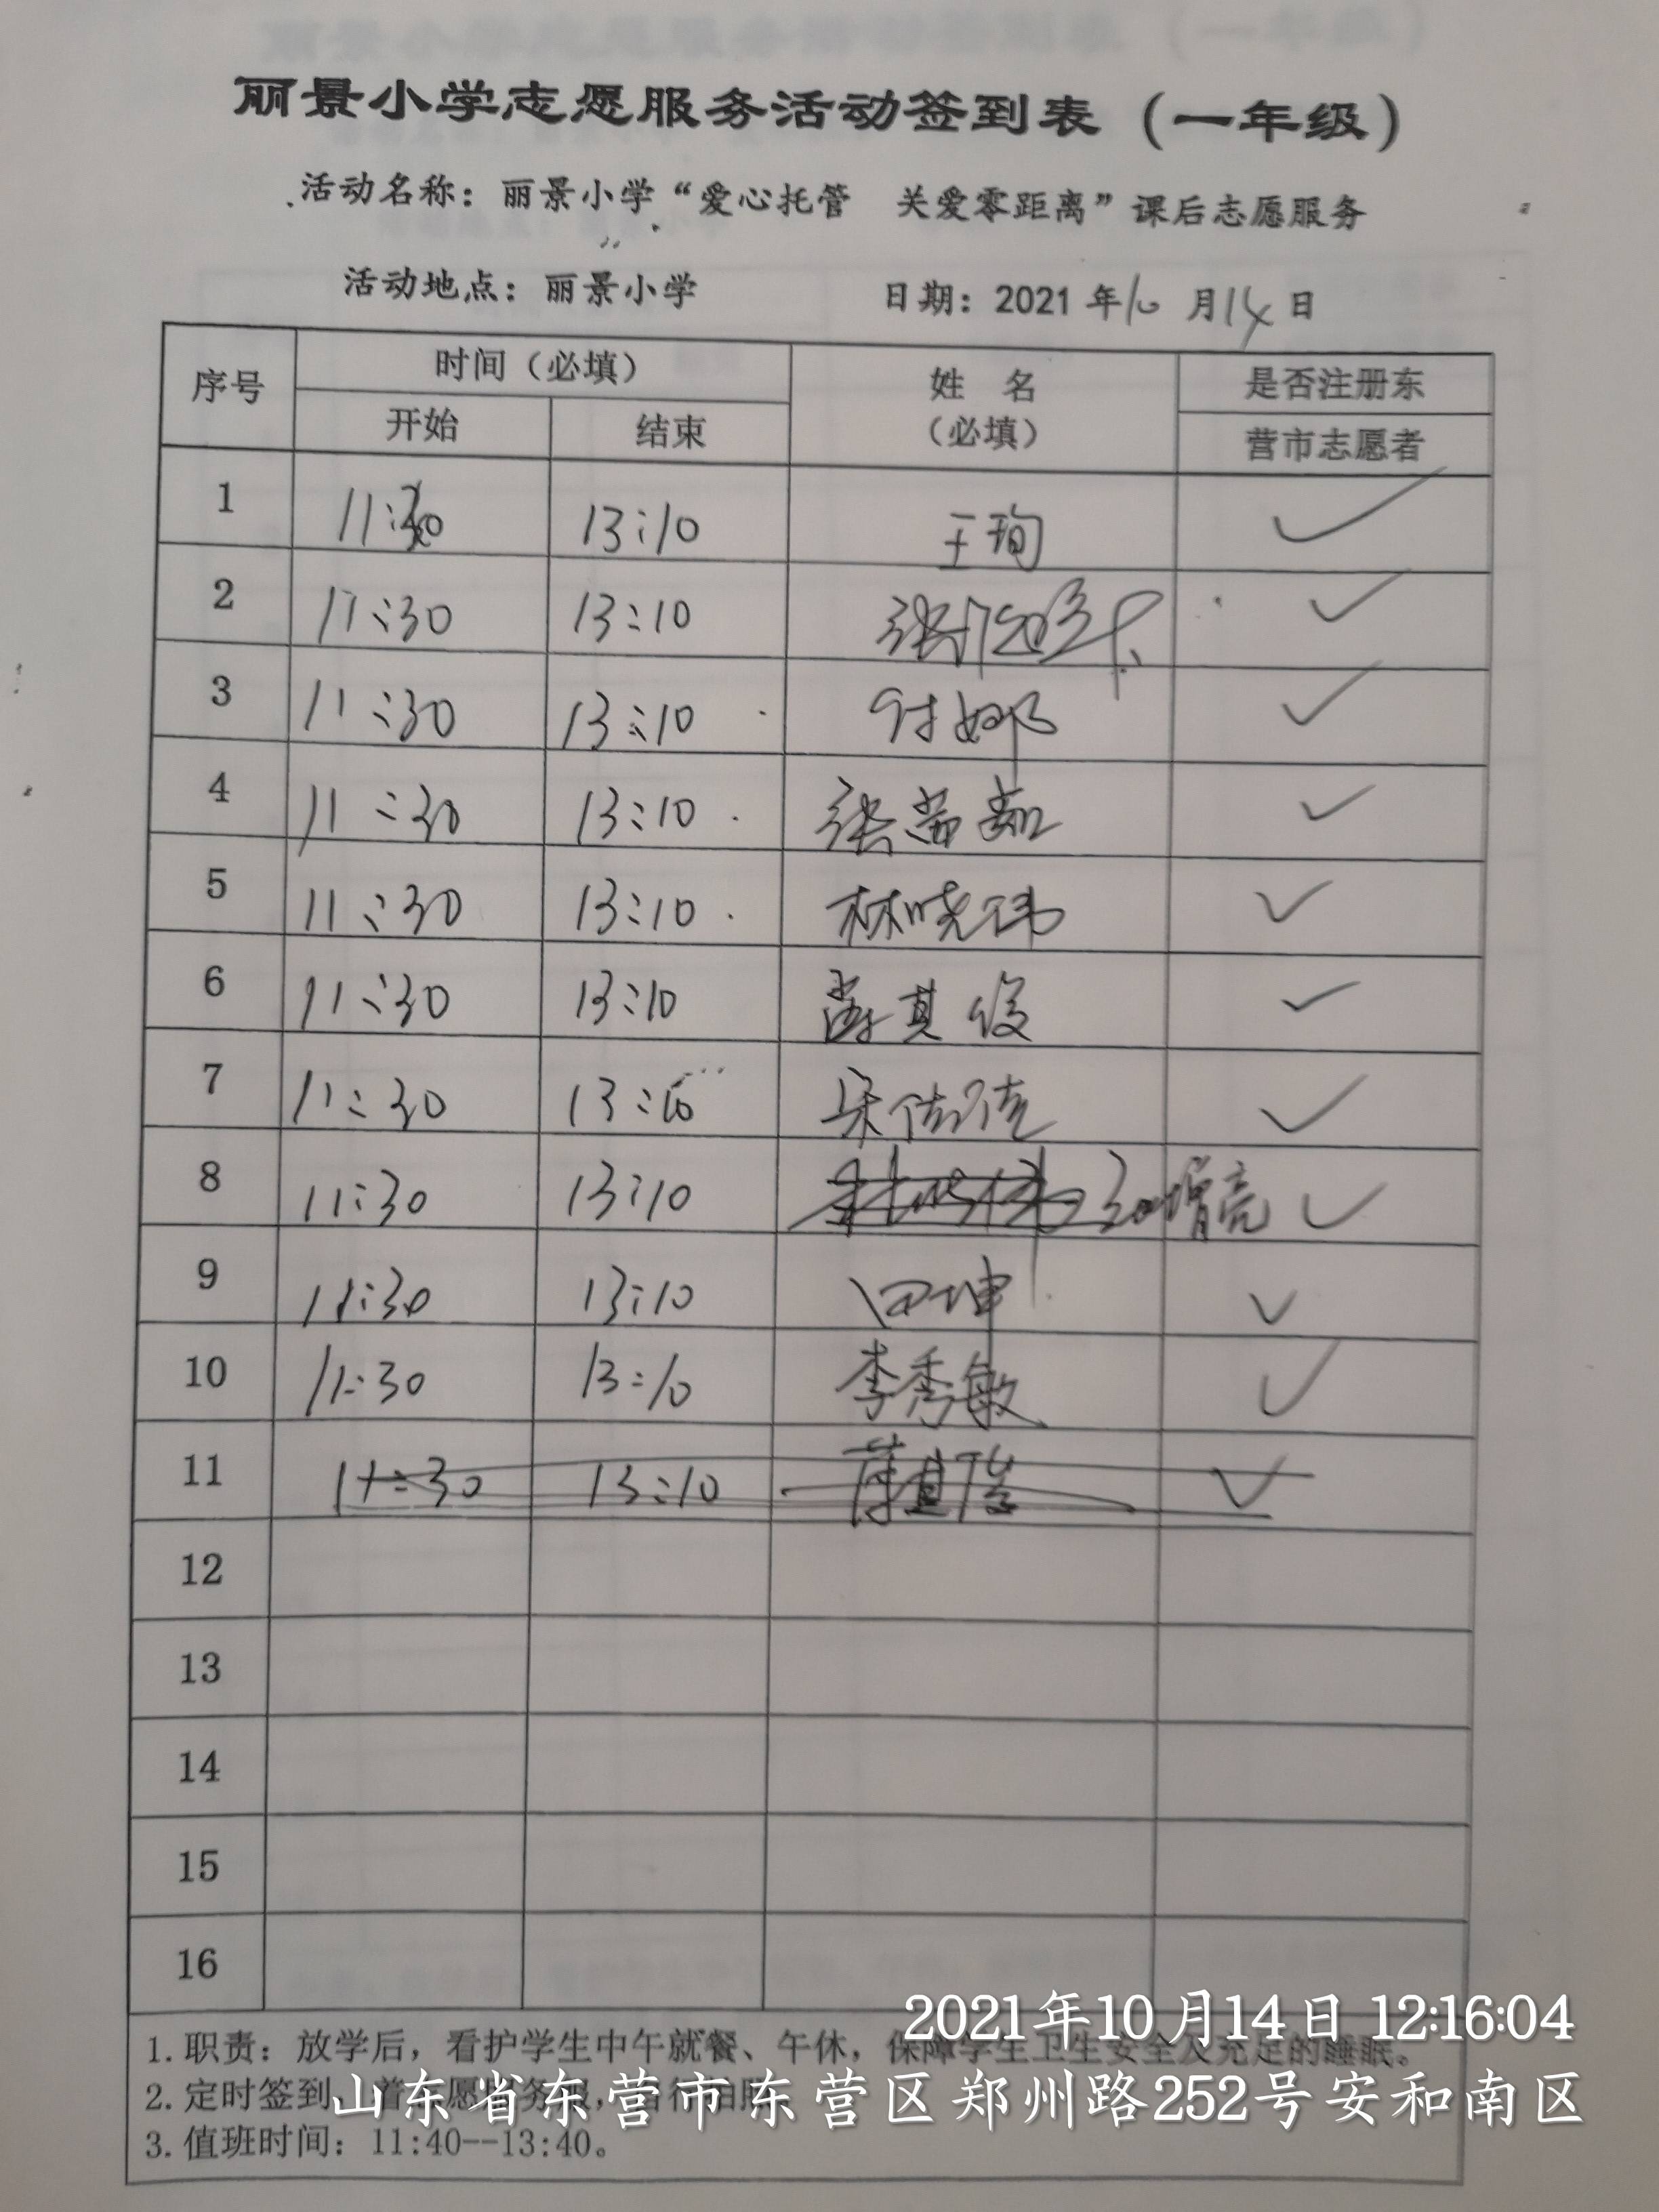 丽景小学志愿服务活动签到表（一年级）
活动名称：丽景小学“爱心托管 关爱零距离”课后志愿服务
活动地点：丽景小学 日期：2021年10月14日
序号 时间（必填） 姓 名 是否注册东
开始 结束 （必填） 营市志愿者
1 11:30 13:10 王珣 ✓
2 11:30 13:10 张 ✓
3 11:30 13:10 付娜 ✓
4 11:30 13:10 张 ✓
5 11:30 13:10 林晓玮 ✓
6 11:30 13:10 其俊 ✓
7 11:30 13:10 ✓
8 11:30 13:10 增亮 ✓
9 11:30 13:10 田坤 ✓
10 11:30 13:10 李秀敏 ✓
11 11:30 13:10 ✓
12
13
14
15
16
2021年10月14日 12:16:04
1.职责：放学后，看护学生中午就餐、午休，保障学生卫生安全及充足的睡眠。
2.定时签到
山东省东营市东营区郑州路252号安和南区
3.值班时间：11:40--13:40。